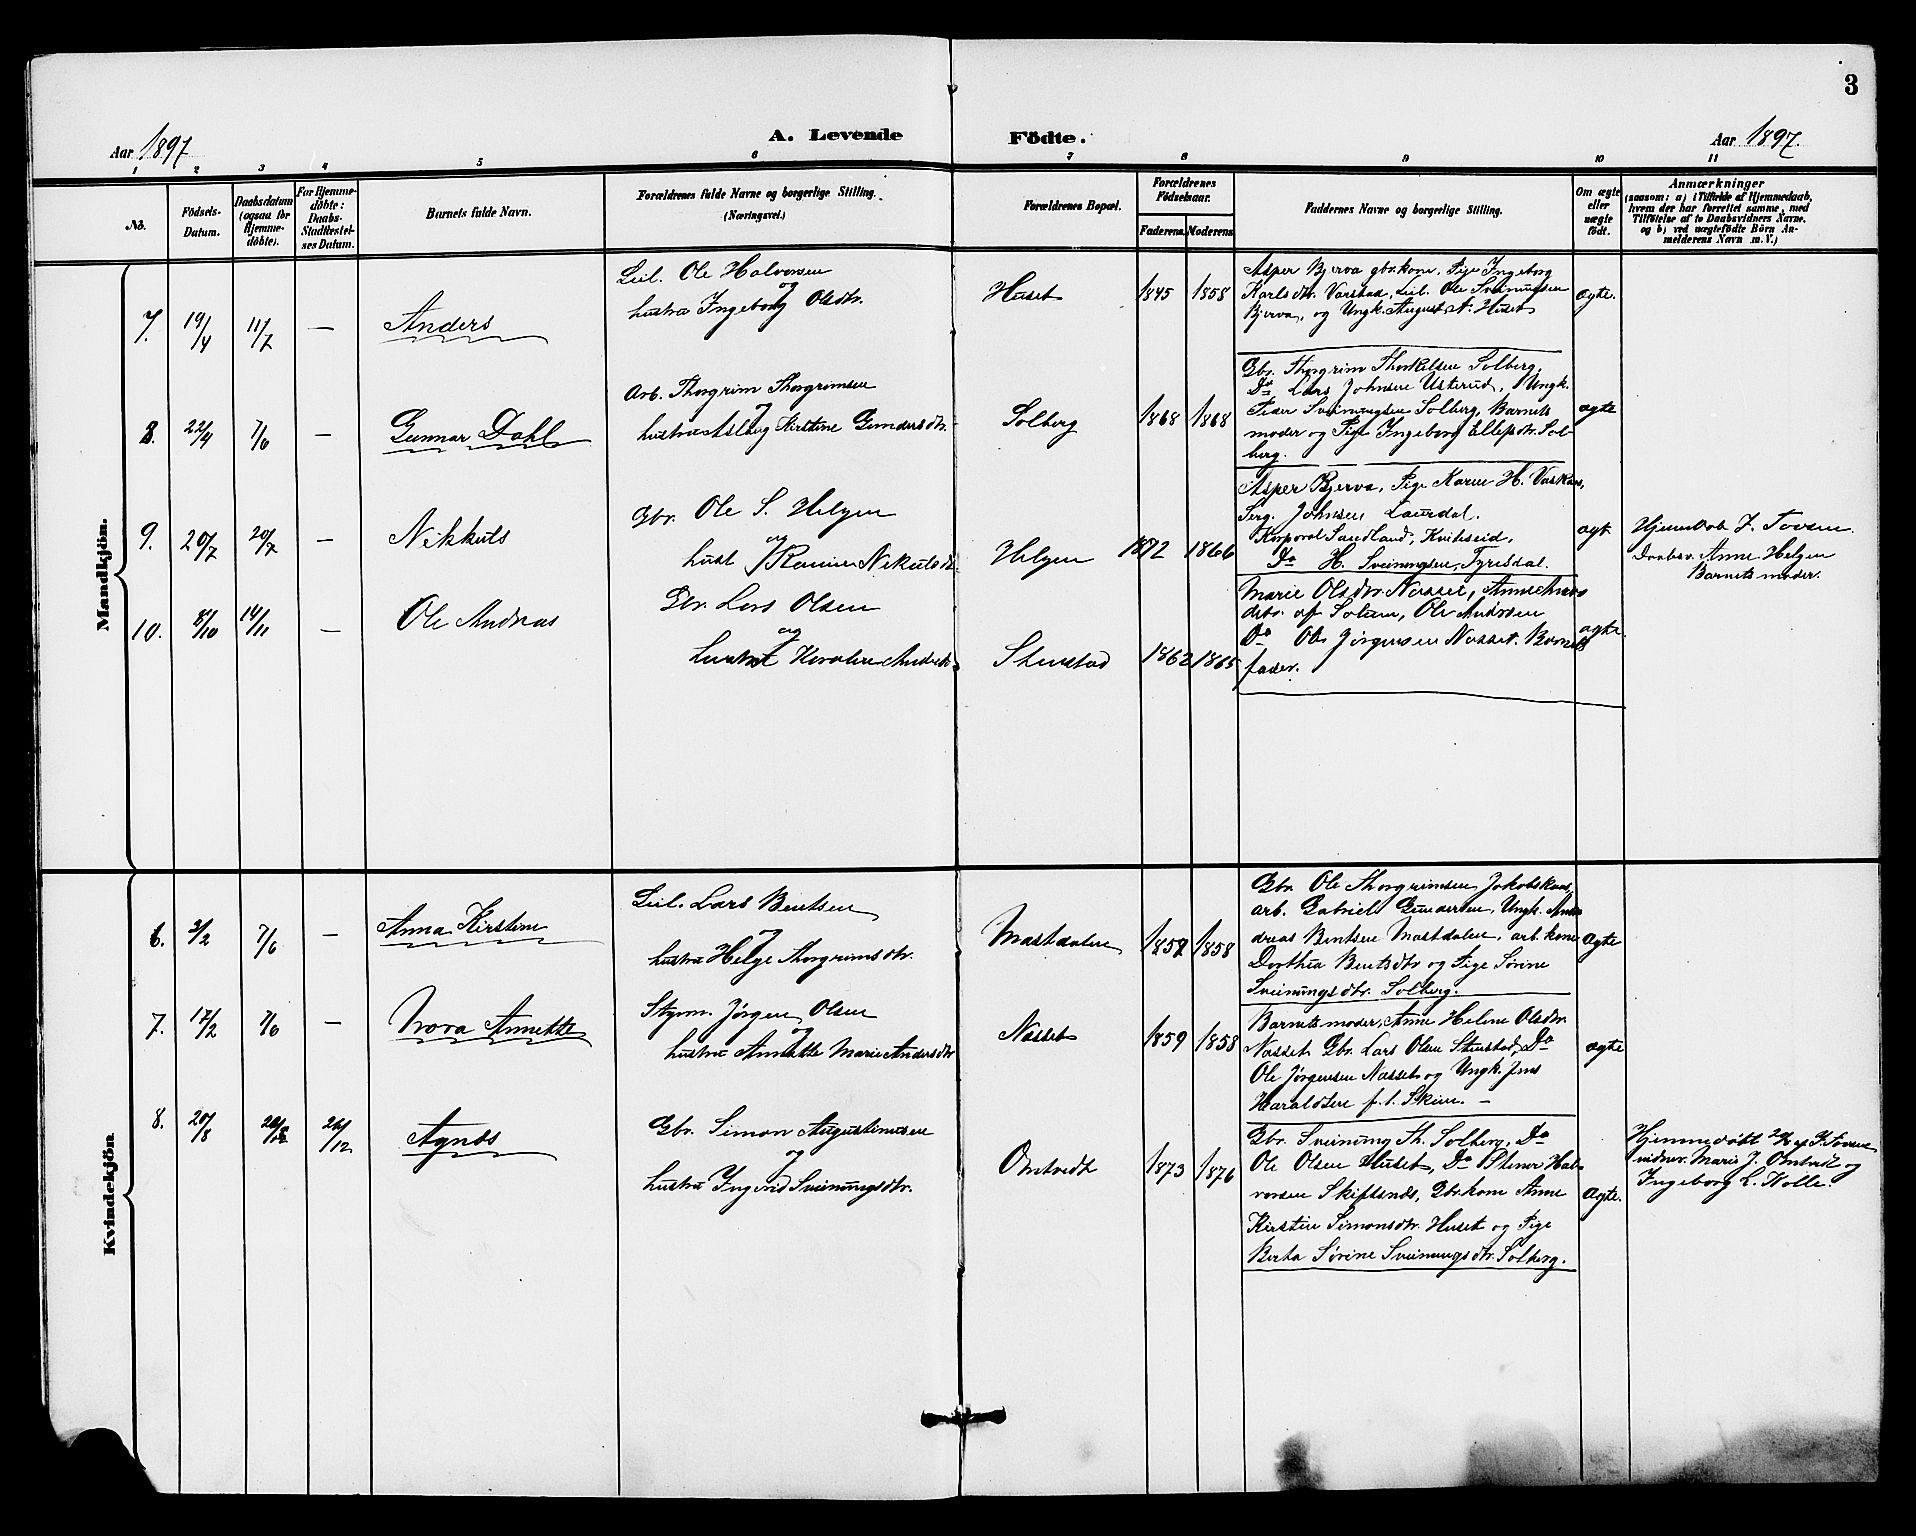 3
A. Levende Födte.
Aar 1897
Aar 1897.
1 2 3 4 5 6 7 8 9 10 11
No.
Födsels-Datum.
Daabsdatum (ogsaa for Hjemme-döbte).
For Hjemme-döbte: Daabs-Stadfæstel-ses Datum.
Barnets fulde Navn.
Forældrenes fulde Navne og borgerlige Stilling. (Næringsvei.)
Forældrenes Bopæl.
Forældrenes Födselsaar.
Faderens. Moderens.
Faddernes Navne og borgerlige Stilling.
Om ægte eller uægte födt.
Anmærkninger
(saasom: a) i Tilfælde af Hjemmedaab, hvem der har forrettet samme, med Tilföielse af to Daabsvidners Navne. og b) ved uægtefödte Börn An-melderens Navn m. V.)
Mandkjön.
7. 19/4 11/7 — Anders
Leil. Ole Halvorsen
og
hustru Ingeborg Olsdtr.
Huset 1845 1858
Asper Bjerva gbr.kone, Pige Ingeborg
Karlsdtr. Varstad, Leil. Ole Sveinungsen
Bjerva, og Ungk. August A. Huset
ægte.
8. 22/4 7/6 — Gunnar Dahl
Arb. Thorgrim Thorgrimsen
og
hustru Aslaug Kirstine Gundersdtr.
Solberg 1868 1868
Gbr. Thorgrim Thorkelsen Solberg,
Do Lars Johnsen Usterud, Ungk.
Peder Sveinungsen Solberg, Barnets
moder og Pige Ingeborg Ellefsdtr. Sol-
berg.
ægte
9. 20/7 20/7 — Nikkuls
Gbr. Ole S. Helgen
og
hust Nikulsd.
Helgen 1872 1866
Asper Bjerva, Pige Karen H.
Serg. Johnsen Laurdal.
Korporal Sandland, Kviteseid,
Do H. Sveinungsen, Tyrisdal.
ægt
Hjemdøb J. Tovsen
Daabsv. Anne Helgen
Barnets moder.
10. 8/10 14/11 — Ole Andreas
Gbr. Lars Olsen
og
hustru
Stenstad 1862 1865
Marie Olsdtr. Næsset,
dtr. af Solum, Ole Andersen
Do Ole Jørgensen Næsset. Barnets
fader.
ægte.
Kvindekjön.
6. 3/2 7/6 — Anna Kirstine
Leil. Lars Bentsen
og
hustru Helge Thorgrimsdtr.
Mastdalen 1852 1858
Gbr. Ole Thorgrimsen Jokobskaas,
arb. Gabriel Gundersen, Ungk. An-
dreas Bentsen Mastdalen, arb. kone
Dorthea Bentsdtr. og Pige Sørine
Sveinungsdtr. Solberg.
ægte
7. 17/2 7/6 — Nora Annette
Styrm. Jørgen Olsen
og
hustru Annette Marie Andersdtr
Næsset 1859 1858
Barnets moder, Anne Helene Olsdtr.
Næsset, Gbr. Lars Olsen Stenstad, Do
Ole Jørgensen Næsset og Ungk. Jens
Haraldsen f. t. Skien. —
ægte
8. 20/8 26/12 Agnes
Gbr. Simon Augustinusen
og
hustru Ingerid Sveinungsdtr.
Omtvedt 1873 1876
Gbr. Sveinung Th. Solberg, Do
Ole Olsen Huset, Do Stener Hal-
vorsen Skiflands, Gbr.kone Anne
Kirstine Simonsdtr. Huset og Pige
Berta Sørine Sveinungsdtr. Solberg.
ægte.
Hjemmedøbt af J. Tovsen
vidner. Marie J. Omtvedt og
Ingeborg L. Kolle.